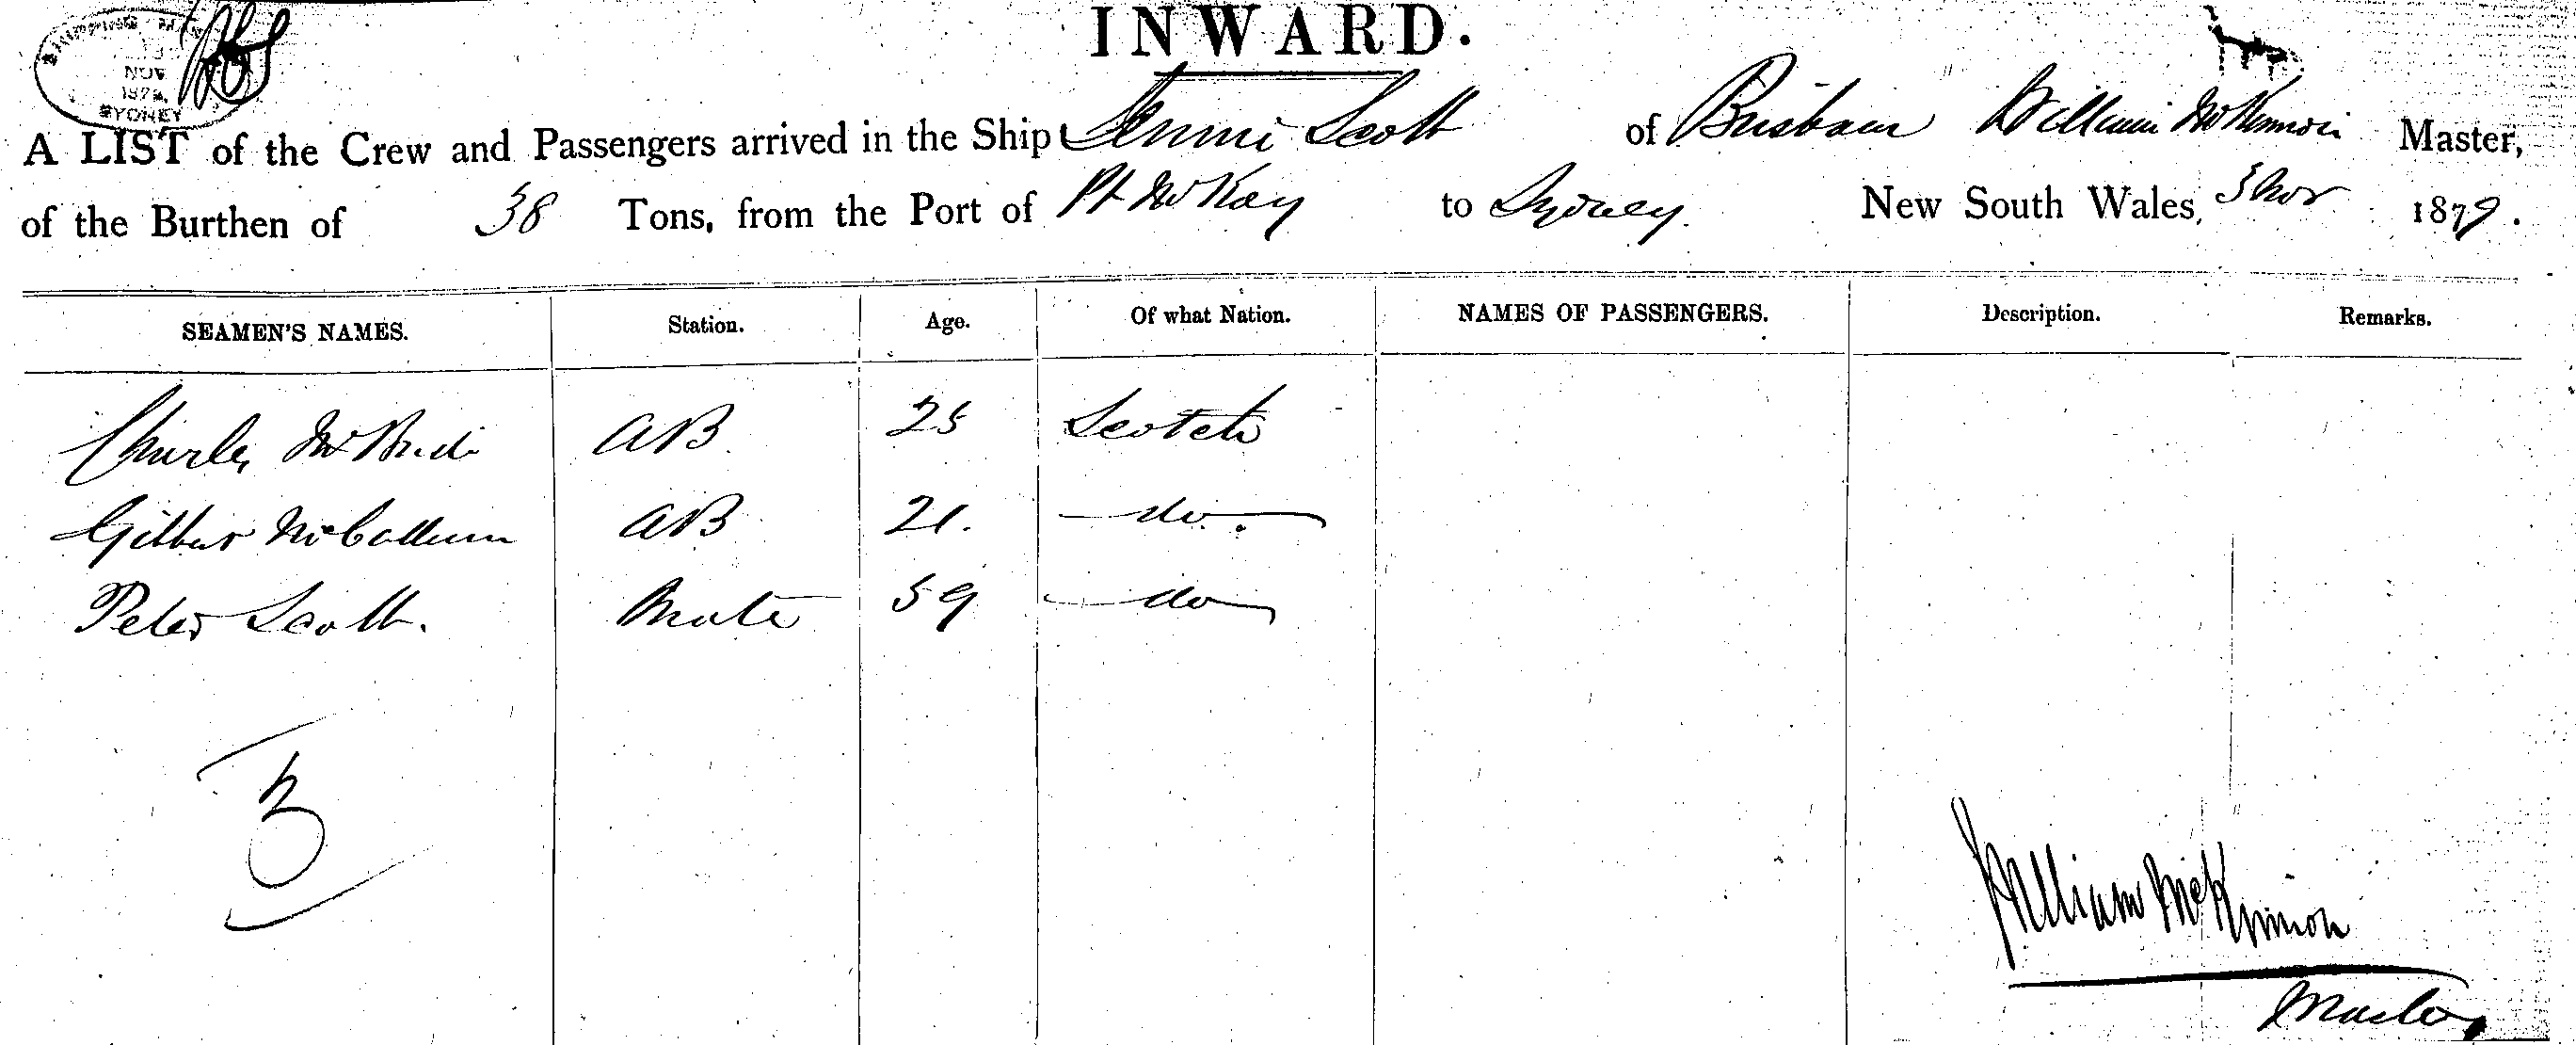 INWARD.
NOV
SYDNEY
A LIST of the Crew and Passengers arrived in the Ship Jennie Scott of Brisbane William McKinnon Master,
of the Burthen of 38 Tons, from the Port of Pt McKay to Sydney. New South Wales, 5 Nov 1879.
SEAMEN'S NAMES. Station. Age. Of what Nation. NAMES OF PASSENGERS. Description. Remarks.
Charles McBride AB 25 Scotch
Gilbert McCallum AB 21. do.
Peter Scott. Mate 59 do
3
William McKinnon
Master